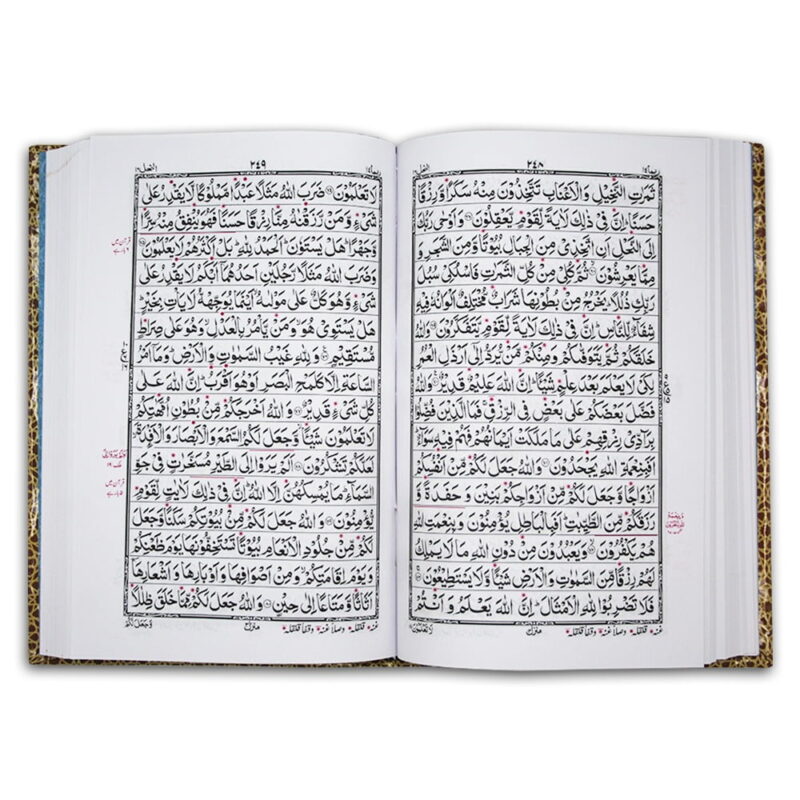 النحل ١٦
٢٤٨
ربما ١٤
ثَمَرٰتِ النَّخِيْلِ وَ الْاَعْنَابِ تَتَّخِذُوْنَ مِنْهُ سَكَرًا وَّ رِزْقًا
حَسَنًا اِنَّ فِيْ ذٰلِكَ لَاٰيَةً لِّقَوْمٍ يَّعْقِلُوْنَ ۞ وَ اَوْحٰى رَبُّكَ
اِلَى النَّحْلِ اَنِ اتَّخِذِيْ مِنَ الْجِبَالِ بُيُوْتًا وَّ مِنَ الشَّجَرِ وَ
مِمَّا يَعْرِشُوْنَ ۞ ثُمَّ كُلِيْ مِنْ كُلِّ الثَّمَرٰتِ فَاسْلُكِيْ سُبُلَ
رَبِّكِ ذُلُلًا يَخْرُجُ مِنْۢ بُطُوْنِهَا شَرَابٌ مُّخْتَلِفٌ اَلْوَانُهٗ فِيْهِ
شِفَآءٌ لِّلنَّاسِ اِنَّ فِيْ ذٰلِكَ لَاٰيَةً لِّقَوْمٍ يَّتَفَكَّرُوْنَ ۞ وَ اللّٰهُ
خَلَقَكُمْ ثُمَّ يَتَوَفّٰىكُمْ وَ مِنْكُمْ مَّنْ يُّرَدُّ اِلٰٓى اَرْذَلِ الْعُمُرِ
لِكَيْ لَا يَعْلَمَ بَعْدَ عِلْمٍ شَيْـًٔا اِنَّ اللّٰهَ عَلِيْمٌ قَدِيْرٌ ۞ وَ اللّٰهُ
فَضَّلَ بَعْضَكُمْ عَلٰى بَعْضٍ فِي الرِّزْقِ فَمَا الَّذِيْنَ فُضِّلُوْا
بِرَآدِّيْ رِزْقِهِمْ عَلٰى مَا مَلَكَتْ اَيْمَانُهُمْ فَهُمْ فِيْهِ سَوَآءٌ
اَفَبِنِعْمَةِ اللّٰهِ يَجْحَدُوْنَ ۞ وَ اللّٰهُ جَعَلَ لَكُمْ مِّنْ اَنْفُسِكُمْ
اَزْوَاجًا وَّ جَعَلَ لَكُمْ مِّنْ اَزْوَاجِكُمْ بَنِيْنَ وَ حَفَدَةً وَّ
رَزَقَكُمْ مِّنَ الطَّيِّبٰتِ اَفَبِالْبَاطِلِ يُؤْمِنُوْنَ وَ بِنِعْمَتِ اللّٰهِ
هُمْ يَكْفُرُوْنَ ۞ وَ يَعْبُدُوْنَ مِنْ دُوْنِ اللّٰهِ مَا لَا يَمْلِكُ
لَهُمْ رِزْقًا مِّنَ السَّمٰوٰتِ وَ الْاَرْضِ شَيْـًٔا وَّ لَا يَسْتَطِيْعُوْنَ ۞
فَلَا تَضْرِبُوْا لِلّٰهِ الْاَمْثَالَ اِنَّ اللّٰهَ يَعْلَمُ وَ اَنْتُمْ
لَا تَعْلَمُوْنَ
منزل ٣
النحل ١٦
٢٤٩
ربما ١٤
لَا تَعْلَمُوْنَ ۞ ضَرَبَ اللّٰهُ مَثَلًا عَبْدًا مَّمْلُوْكًا لَّا يَقْدِرُ عَلٰى
شَيْءٍ وَّ مَنْ رَّزَقْنٰهُ مِنَّا رِزْقًا حَسَنًا فَهُوَ يُنْفِقُ مِنْهُ سِرًّا
وَّ جَهْرًا هَلْ يَسْتَوٗنَ اَلْحَمْدُ لِلّٰهِ بَلْ اَكْثَرُهُمْ لَا يَعْلَمُوْنَ ۞
وَ ضَرَبَ اللّٰهُ مَثَلًا رَّجُلَيْنِ اَحَدُهُمَآ اَبْكَمُ لَا يَقْدِرُ عَلٰى
شَيْءٍ وَّ هُوَ كَلٌّ عَلٰى مَوْلٰىهُ اَيْنَمَا يُوَجِّهْهُّ لَا يَاْتِ بِخَيْرٍ
هَلْ يَسْتَوِيْ هُوَ وَ مَنْ يَّاْمُرُ بِالْعَدْلِ وَ هُوَ عَلٰى صِرَاطٍ
مُّسْتَقِيْمٍ ۞ وَ لِلّٰهِ غَيْبُ السَّمٰوٰتِ وَ الْاَرْضِ وَ مَآ اَمْرُ
السَّاعَةِ اِلَّا كَلَمْحِ الْبَصَرِ اَوْ هُوَ اَقْرَبُ اِنَّ اللّٰهَ عَلٰى
كُلِّ شَيْءٍ قَدِيْرٌ ۞ وَ اللّٰهُ اَخْرَجَكُمْ مِّنْۢ بُطُوْنِ اُمَّهٰتِكُمْ
لَا تَعْلَمُوْنَ شَيْـًٔا وَّ جَعَلَ لَكُمُ السَّمْعَ وَ الْاَبْصَارَ وَ الْاَفْـِٕدَةَ
لَعَلَّكُمْ تَشْكُرُوْنَ ۞ اَلَمْ يَرَوْا اِلَى الطَّيْرِ مُسَخَّرٰتٍ فِيْ جَوِّ
السَّمَآءِ مَا يُمْسِكُهُنَّ اِلَّا اللّٰهُ اِنَّ فِيْ ذٰلِكَ لَاٰيٰتٍ لِّقَوْمٍ
يُّؤْمِنُوْنَ ۞ وَ اللّٰهُ جَعَلَ لَكُمْ مِّنْۢ بُيُوْتِكُمْ سَكَنًا وَّ جَعَلَ
لَكُمْ مِّنْ جُلُوْدِ الْاَنْعَامِ بُيُوْتًا تَسْتَخِفُّوْنَهَا يَوْمَ ظَعْنِكُمْ
وَ يَوْمَ اِقَامَتِكُمْ وَ مِنْ اَصْوَافِهَا وَ اَوْبَارِهَا وَ اَشْعَارِهَآ
اَثَاثًا وَّ مَتَاعًا اِلٰى حِيْنٍ ۞ وَ اللّٰهُ جَعَلَ لَكُمْ مِّمَّا خَلَقَ ظِلٰلًا
وَّ جَعَلَ لَكُمْ
منزل ٣